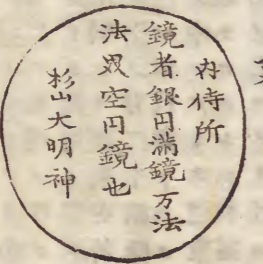 内侍所
鏡者銀円満鏡万法
法界空円鏡也
杉山大明神